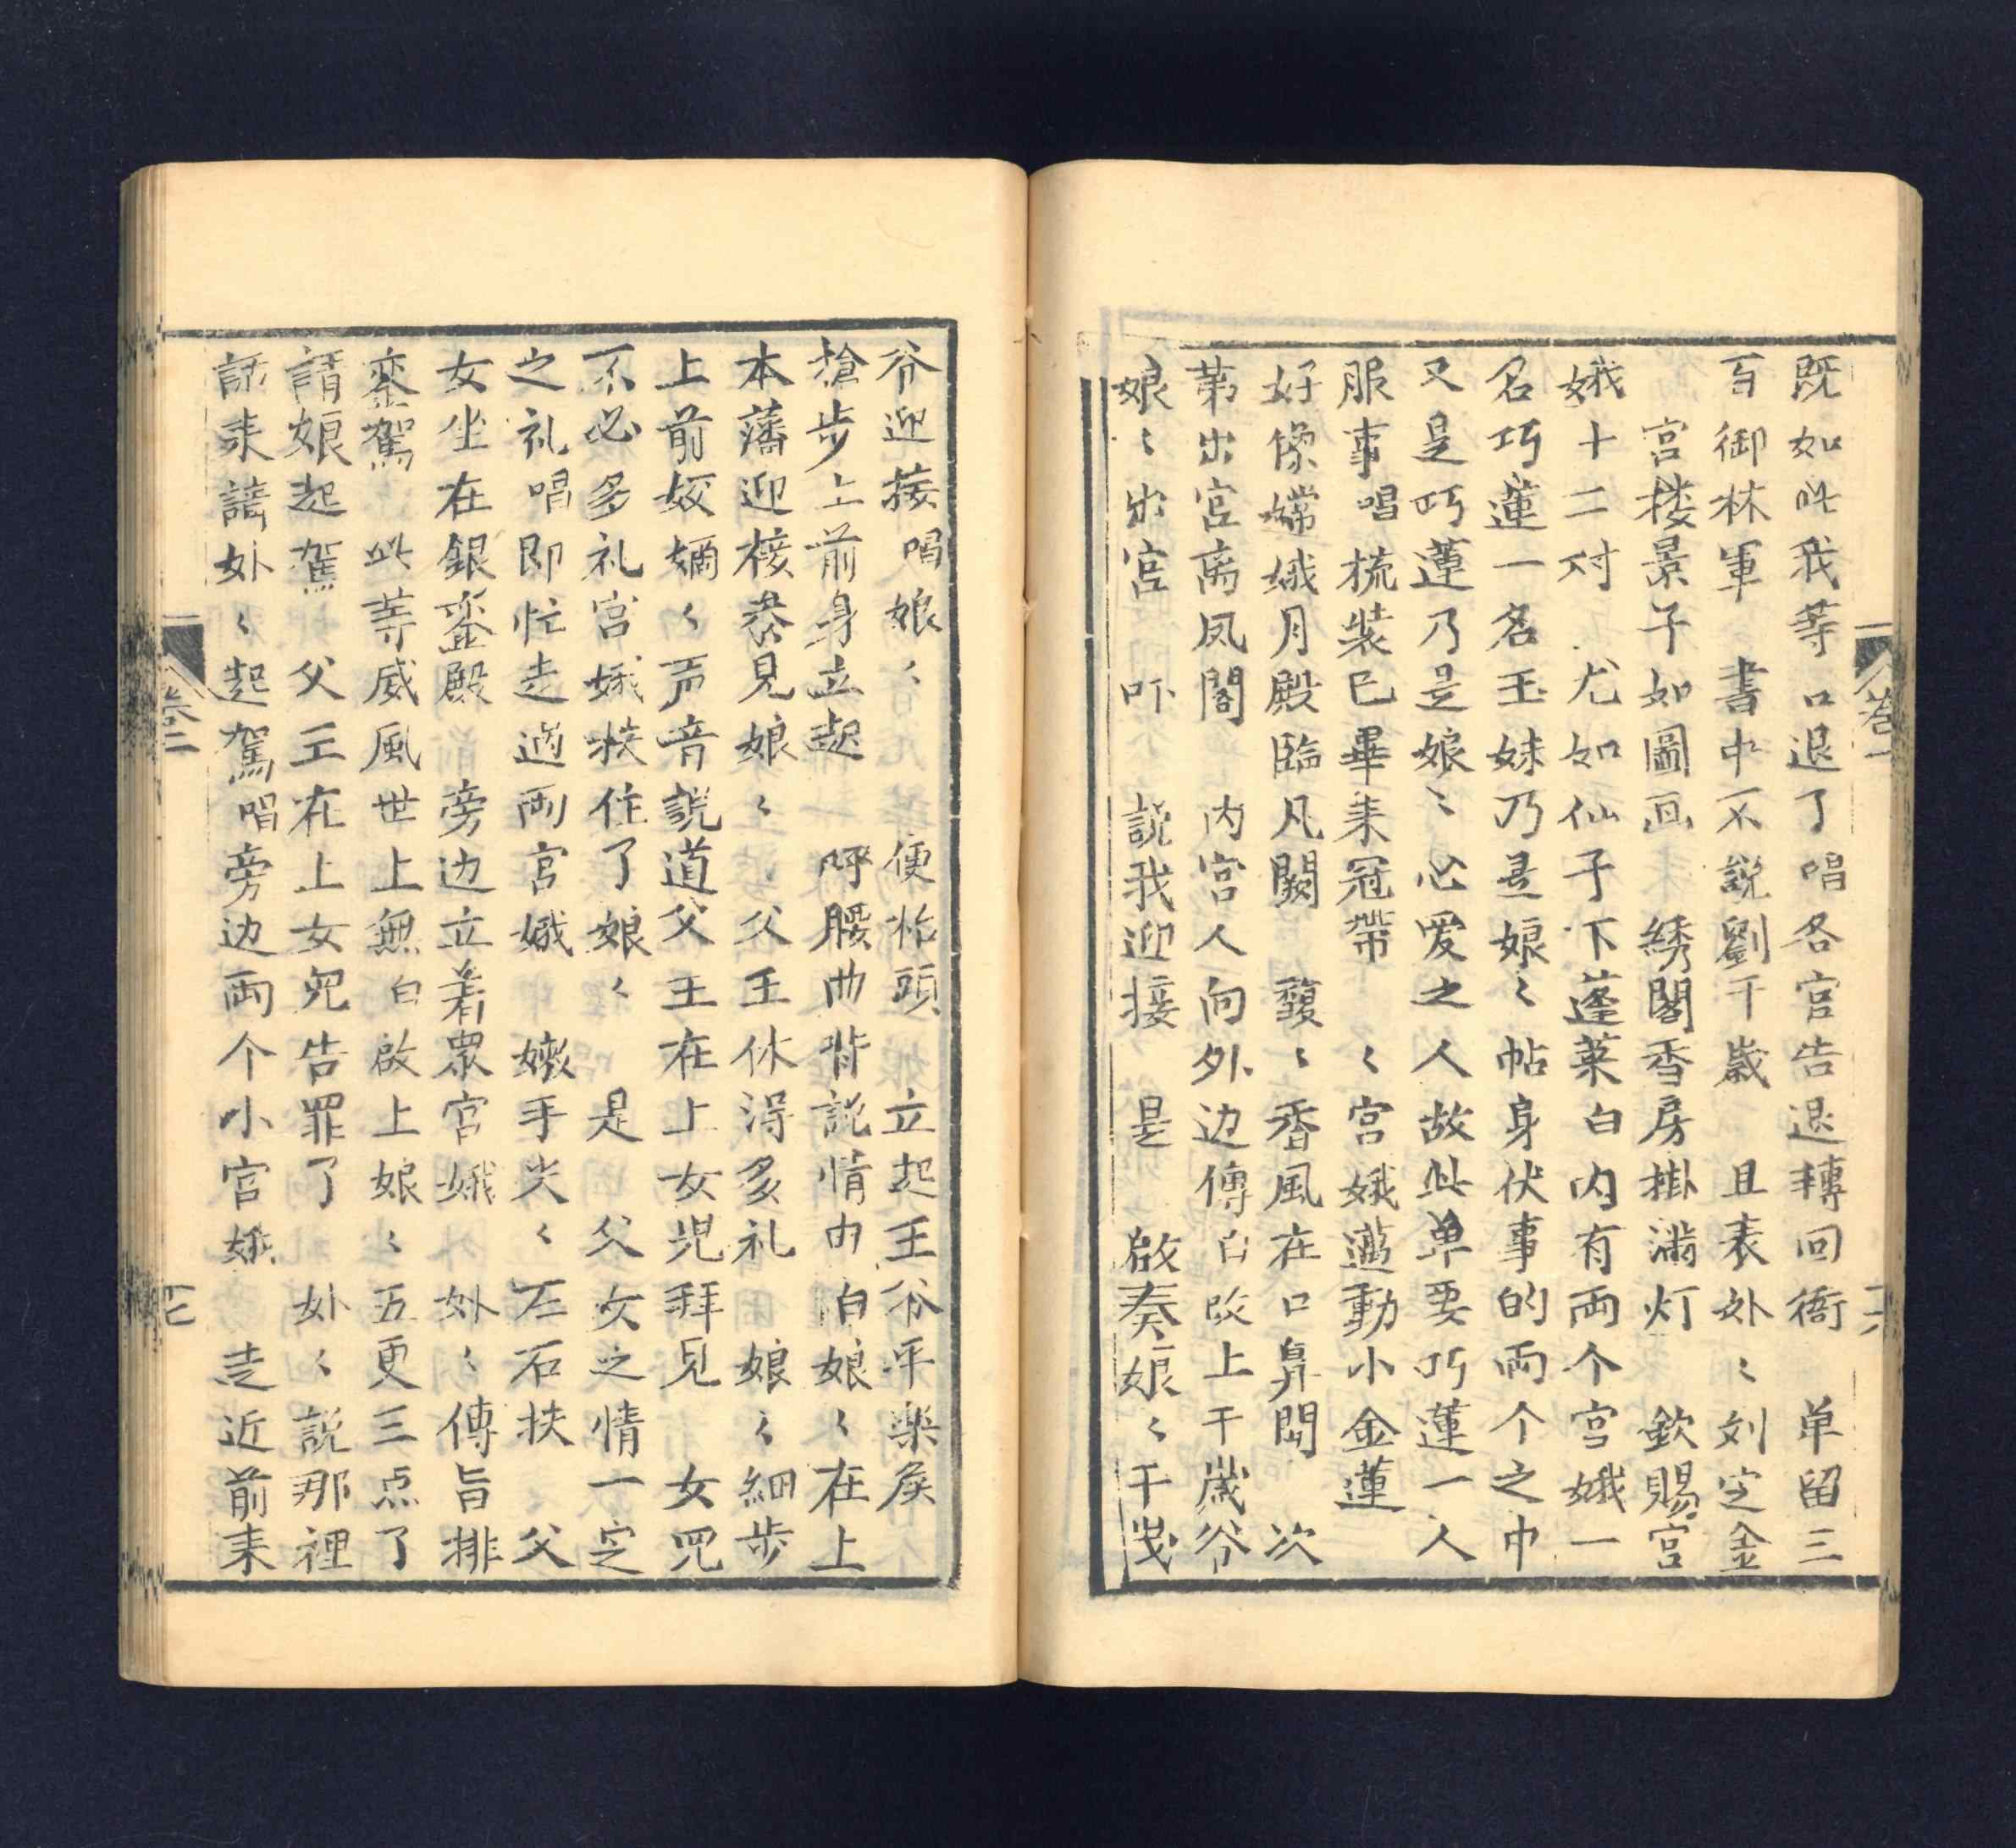 既如此我等口退了唱各官告退轉回衙　单留三
百御林軍　書中不説劉千歲　且表外〻刘定金
宫楼景子如圖画　綉閣香房掛滿灯　欽賜宫
娥十二对　尤如仙子下蓬莱白内有両个宫娥一
名巧蓮一名玉妹乃是娘〻帖身伏事的両个之中
又是巧蓮乃是娘〻心爱之人故此单要巧蓮一人
服事唱梳裝已畢来冠帶　〻宫娥邁動小金蓮
好像嫦娥月殿臨凡闕　馥〻香風在口鼻聞　次
第出宫离凤閣　内宫人向外边傳白啟上千歲爷
娘〻出宫　吓　説我迎接　是　啟奏娘〻千岁
卷一
十六
爷迎接唱娘〻　便枱頭　立起王爷平樂矦
搶步上前身立起　呼腰曲背説情由白娘〻在上
本藩迎接恭見娘〻　父王休得多礼　娘〻細步
上前姣嫡〻声音説道父王在上女児拜見　女児
不必多礼宫娥扶住了娘〻　是　父女之情一定
之礼唱即忙走過両宫娥　嫩手尖〻左右扶　父
女坐在銀銮殿　旁边立着眾宫娥　外〻傳旨排
銮駕　此等威風世上無白啟上娘〻五更三点了
請娘起駕　父王在上女児告罪了　外〻説那裡
話来請外〻起駕唱旁边両个小宫娥　走近前来
卷二
十七